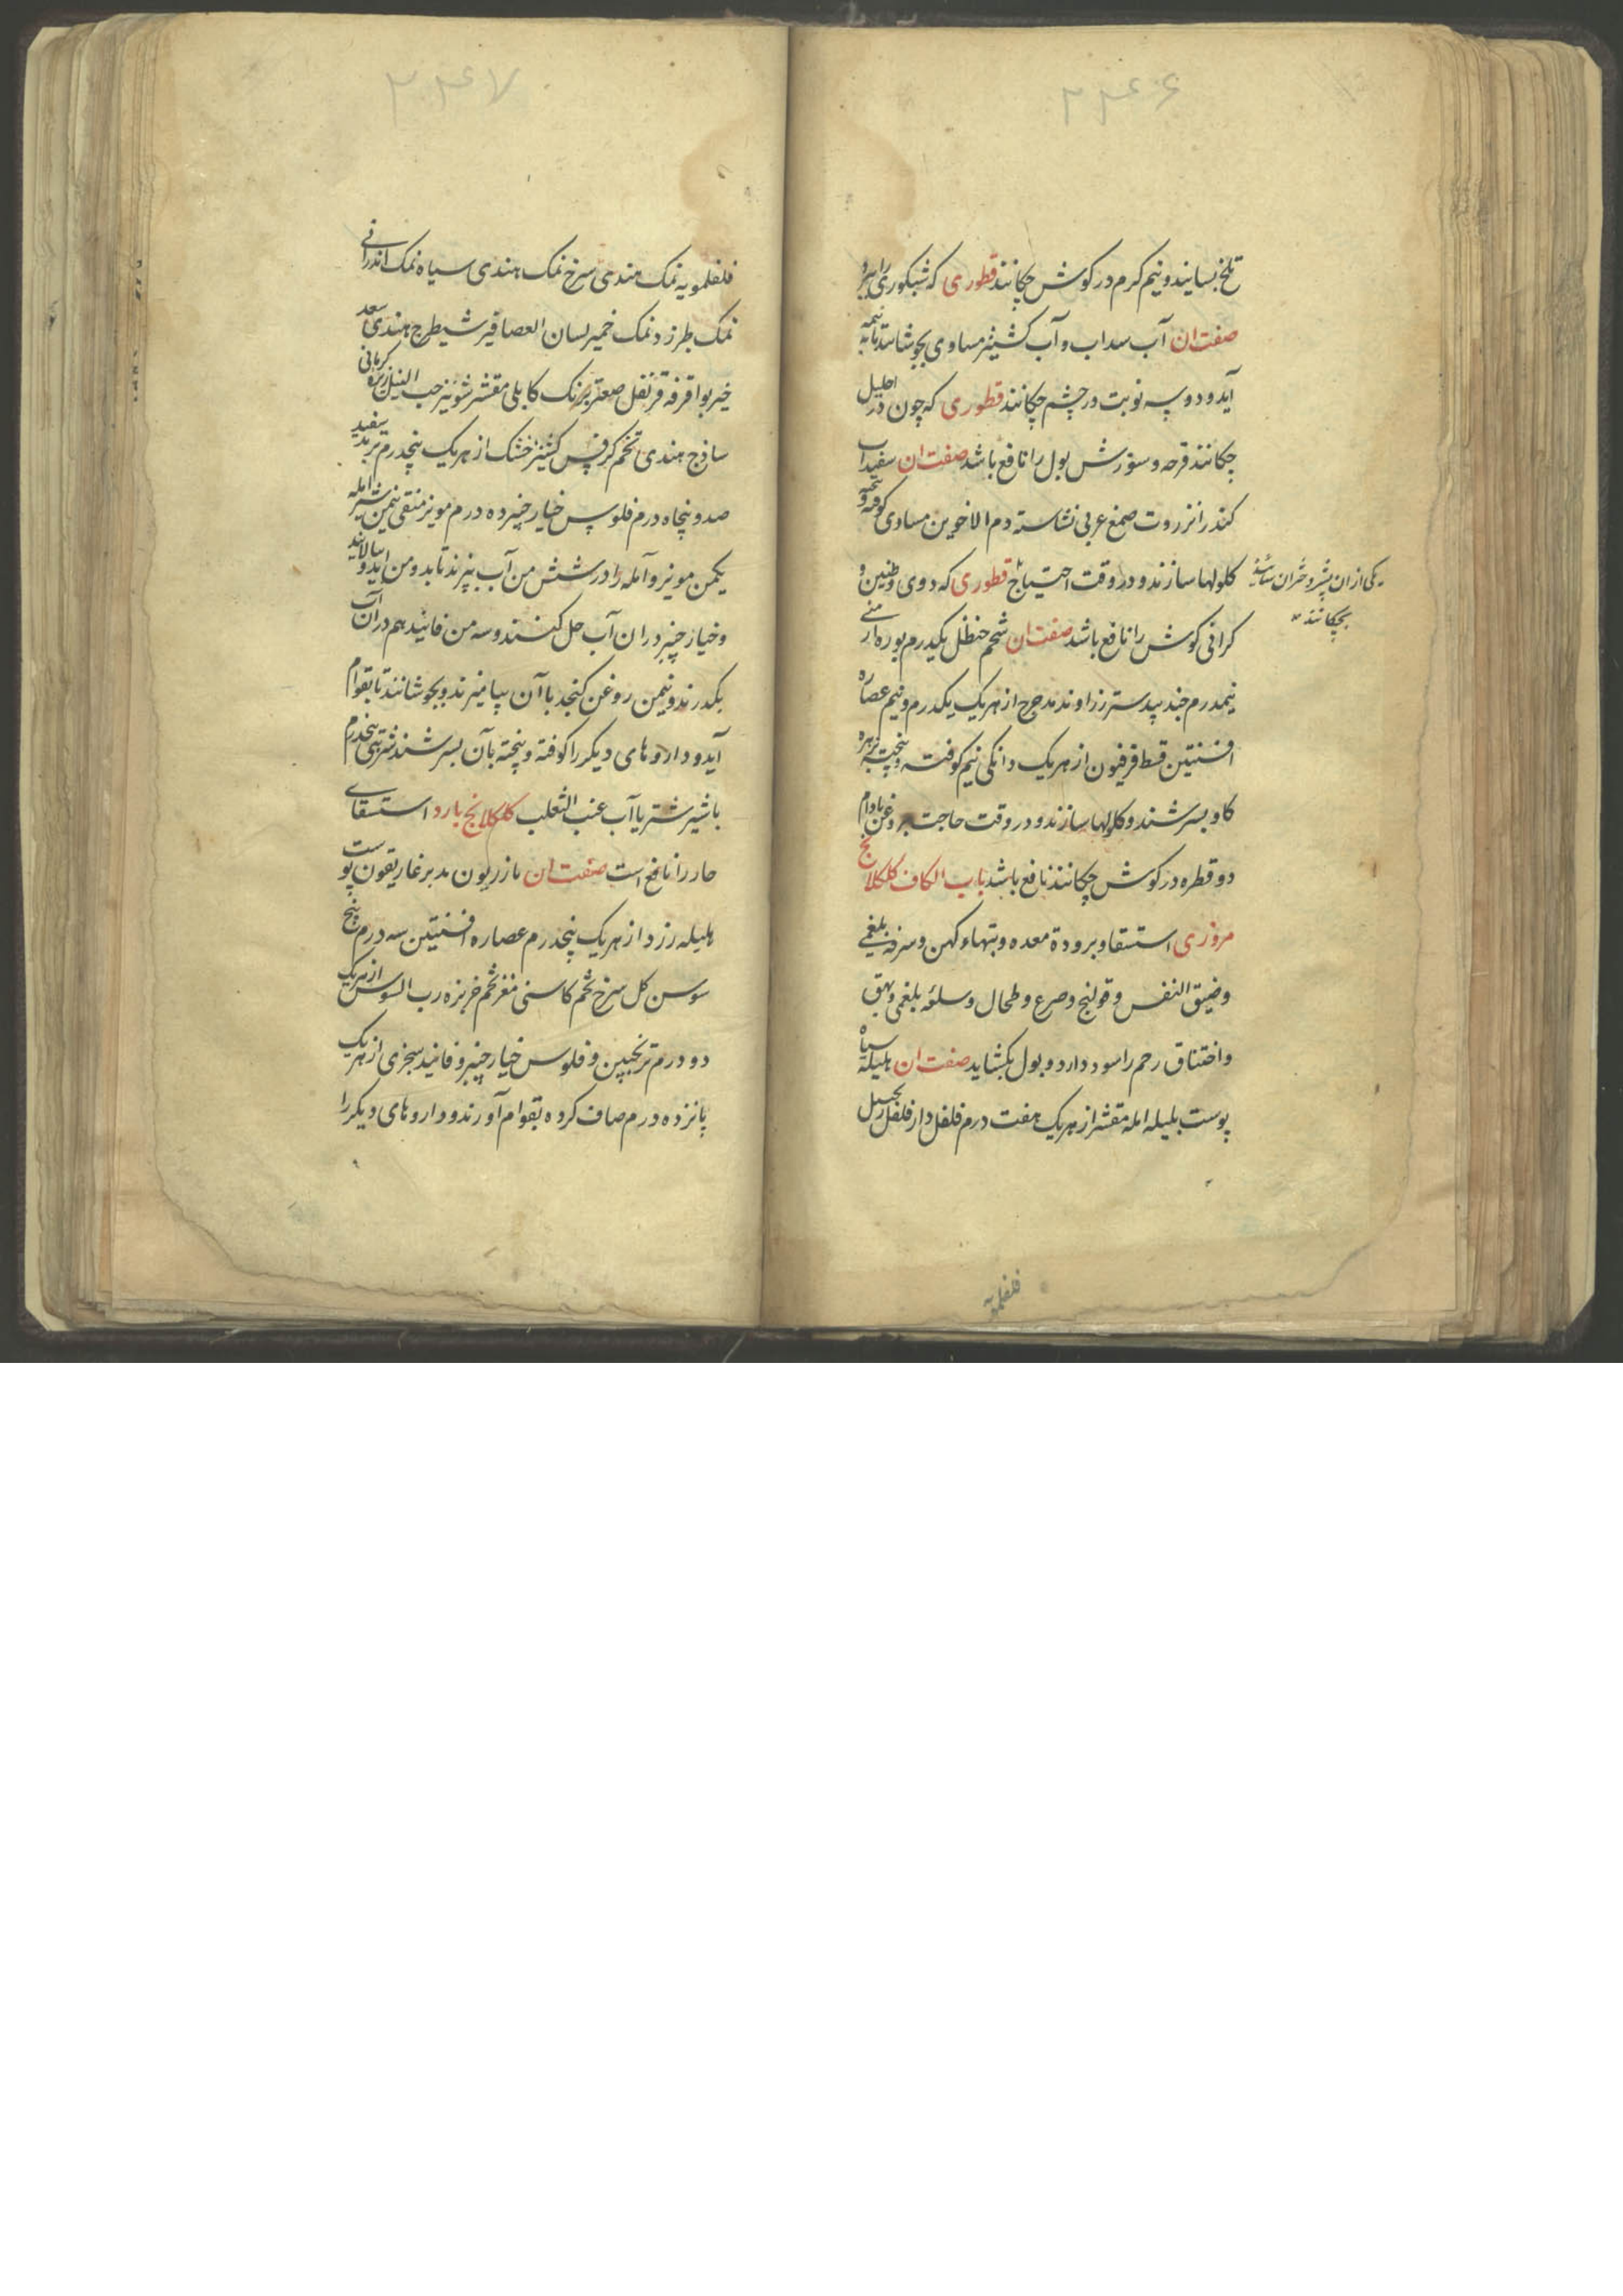 ۲۲۴۶
تلخ بسایند و نیم کرم در کوش چکانند قطوری که شبکوری را ببرد
صفت ان آب سداب و آب کشنیز مساوی بجوشانند تا به نیمه
آید و دو سه نوبت در چشم چکانند قطوری که چون در احلیل
چکانند قرحه و سوزش بول را نافع باشد صفت ان سفیداب
کندر انزروت صمغ عربی نشاسته دم الاخوین مساوی کوفته و بیخته
کلولها سازند و در وقت احتیاج قطوری که دوی و طنین و
یکی از ان بشیر دختران بسایند
بچکانند
کرانی کوش را نافع باشد صفت ان شحم حنظل یکدرم بوره ارمنی
نیمدرم جند بیدستر زراوند مدحرج از هر یک یکدرم و نیم عصاره
افسنتین قسط فرفیون از هر یک دانکی نیم کوفته و بیخته بزهره
کاو بسرشند و کلولها سازند و در وقت حاجت بروغن بادام
دو قطره در کوش چکانند نافع باشد باب الکاف کلکلانج
مروزی استسقا و برودة معده و تبهاء کهن و سرفه بلغمی
و ضیق النفس و قولنج و صرع و طحال و سلوه بلغمی و بهق
و اختناق رحم را سود دارد و بول بکشاید صفت ان هلیله سیاه
پوست بلیله امله مقشر از هر یک هفت درم فلفل دار فلفل زنجبیل
فلفلمویه
۲۲۴۷
فلفلمویه نمک هندی سرخ نمک هندی سیاه نمک اندرانی
نمک طبرزد نمک خمیر لسان العصافیر شیطرج هندی سعد
خیربوا قرفه قرنفل صعتر برنک کابلی مقشر شونیز حب النیل زیره کرمانی
ساذج هندی تخم کرفس کشنیز خشک از هر یک پنجدرم تربد سفید
صد و پنجاه درم فلوس خیارچنبر ده درم مویز منقی نیمن شیر امله
یکمن مویز و آمله را در شش من آب بپزند تا بدو من اید و بپالایند
و خیار چنبر در ان آب حل کنند و سه من فانیذ هم در آن آب
بکدرند و نیمن روغن کنجد با آن بیامیزند و بجوشانند تا بقوام
آید و داروهای دیکر را کوفته و بیخته بآن بسرشند شربتی پنجدرم
باشیر شتر یا آب عنب الثعلب کلکلانج بارد استسقای
حار را نافع است صفت ان مازریون مدبر غاریقون پوست
هلیله زرد از هر یک پنجدرم عصاره افسنتین سه درم بیخ
سوسن کل سرخ تخم کاسنی مغز تخم خربزه رب السوس از هر یک
دو درم ترنجبین و فلوس خیار چنبر و فانید سجزی از هر یک
پانزده درم صاف کرده بقوام آورند و داروهای دیکر را